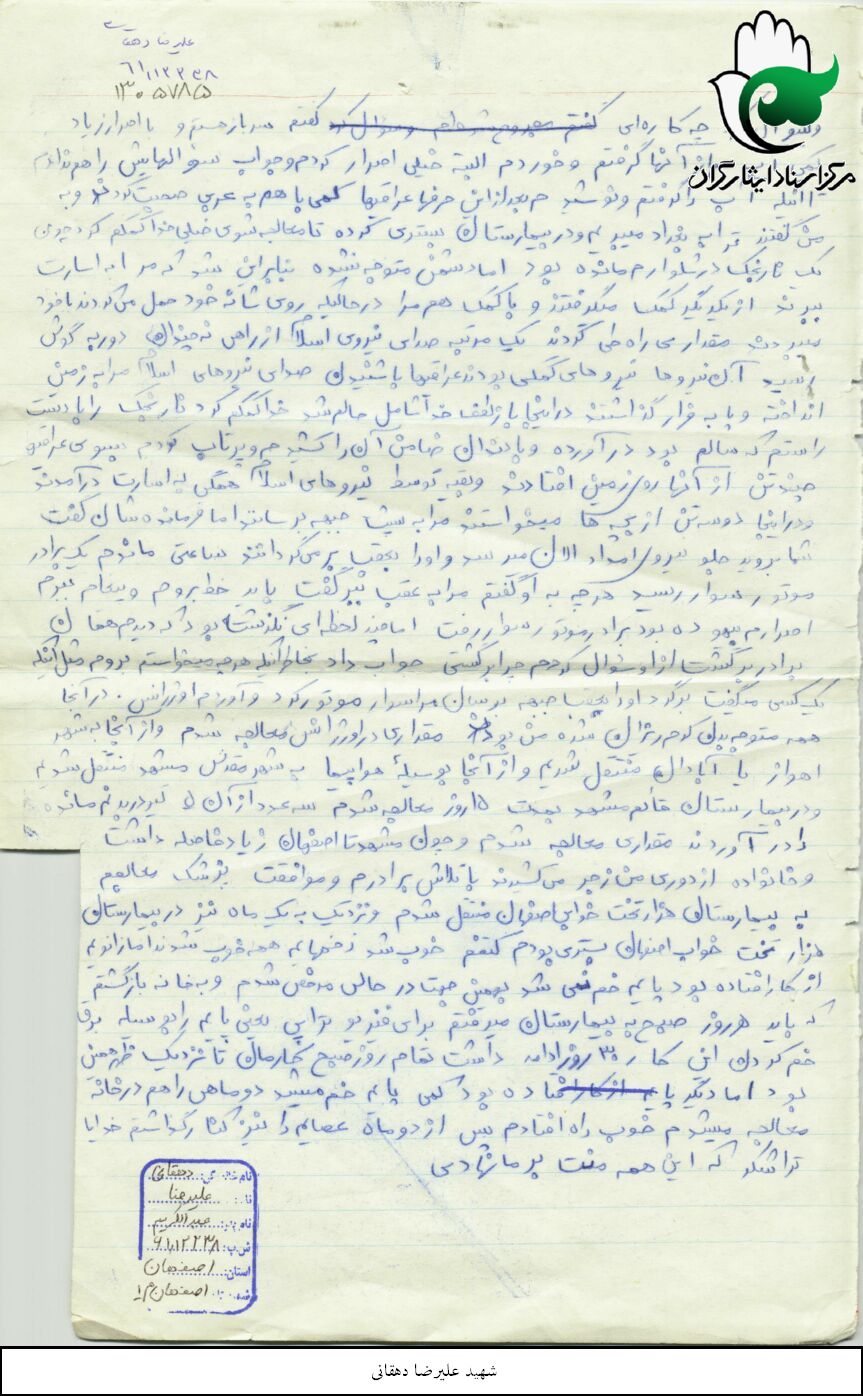 علیرضا دهقانی
۶۱۱۲۲۳۸
۱۳۰۵۷۸۵
مرکز اسناد ایثارگران
چه کاره‌ای گفتم گفتم سرباز هستم و با اصرار زیاد
از آنها گرفتم و خوردم البته خیلی اصرار کردم و جواب سؤالهایش را هم ندادم
آب را گرفتم و نوشیدم بعد از این حرفها عراقیها کمی با هم به عربی صحبت کردند و به
من گفتند ترا به بغداد میبریم و در بیمارستان بستری کرده تا معالجه شوی خیلی خدا کمکم کرد چون
یک نارنجک در شلوارم مانده بود اما دشمن متوجه نشده بنابراین شد که مرا به اسارت
ببرند از یکدیگر کمک میگرفتند و با کمک هم مرا در حالیکه روی شانه خود حمل می‌کردند با خود
میبردند مقداری راه طی کردند یک مرتبه صدای نیروی اسلام از راهی نه چندان دور به گوش
رسید آن نیروها نیروهای کمکی بودند عراقیها با شنیدن صدای نیروهای اسلام مرا به زمین
انداخته و پا به فرار گذاشتند در اینجا باز لطف خدا شامل حالم شد خدا کمکم کرد نارنجک را با دست
راستم که سالم بود در آورده و با دندان ضامن آن را کشیدم و پرتاب کردم بسوی عراقیها
چند تن از آنها روی زمین افتادند و بقیه توسط نیروهای اسلام همگی به اسارت درآمدند
و در اینجا دو سه تن از بچه ها میخواستند مرا به پشت جبهه برسانند اما فرمانده شان گفت
شما بروید جلو نیروی امداد الان میرسد و او را بعقب برمی‌گردانند ساعتی ماندم یک برادر
موتور سوار رسید هر چه به او گفتم مرا به عقب ببر گفت باید خط بروم و پیغام ببرم
اصرارم بیهوده بود برادر موتور سوار رفت اما چند لحظه‌ای نگذشته بود که دیدم همان
برادر برگشت از او سئوال کردم چرا برگشتی جواب داد بخاطر اینکه هر چه میخواستم بروم مثل اینکه
یک کسی میگفت برگرد او را بعقب جبهه برسان مرا سوار موتور کرد و آورد به اورژانس. در آنجا
همه متوجه بدن مجروح من بودند مقداری در اورژانس معالجه شدم و از آنجا به شهر
اهواز یا آبادان منتقل شدیم و از آنجا بوسیلهٔ هواپیما به شهر مقدس مشهد منتقل شدیم
و در بیمارستان قائم مشهد بمدت ۱۵ روز معالجه شدم سه عدد از آن تیر در بدنم مانده
را در آوردند مقداری معالجه شدم و چون مشهد تا اصفهان زیاد فاصله داشت
و خانواده از دوری من زجر می‌کشیدند با تلاش برادرم و موافقت پزشک معالجم
به بیمارستان هزار تخت خوابی اصفهان منتقل شدم و نزدیک به یک ماه نیز در بیمارستان
هزار تخت خواب اصفهان بستری بودم کتفم خوب شد زخمهایم همه خوب شدند اما زانویم
از کار افتاده بود پایم خم نمی شد بهمین جهت در حالی مرخص شدم و به خانه بازگشتم
که باید هر روز صبح به بیمارستان میرفتم برای فیزیوتراپی یعنی پایم را بوسیله برق
خم کردن این کار ۳۰ روز ادامه داشت تمام روز صبح کارمان تا نزدیک ظهر همین
بود اما دیگر پایم از کار افتاده بود کمی پایم خم میشد دو ماهی را هم در خانه
معالجه میشدم خوب راه افتادم پس از دو ماه عصایم را نیز کنار گذاشتم خدایا
ترا شکر که این همه منت بر ما نهادی
نام خانوادگی: دهقانی
نام: علیرضا
نام پدر: عبدالکریم
ش.پ: ۶۱۱۲۲۳۸
استان: اصفهان
اصفهان م ۱
شهید علیرضا دهقانی